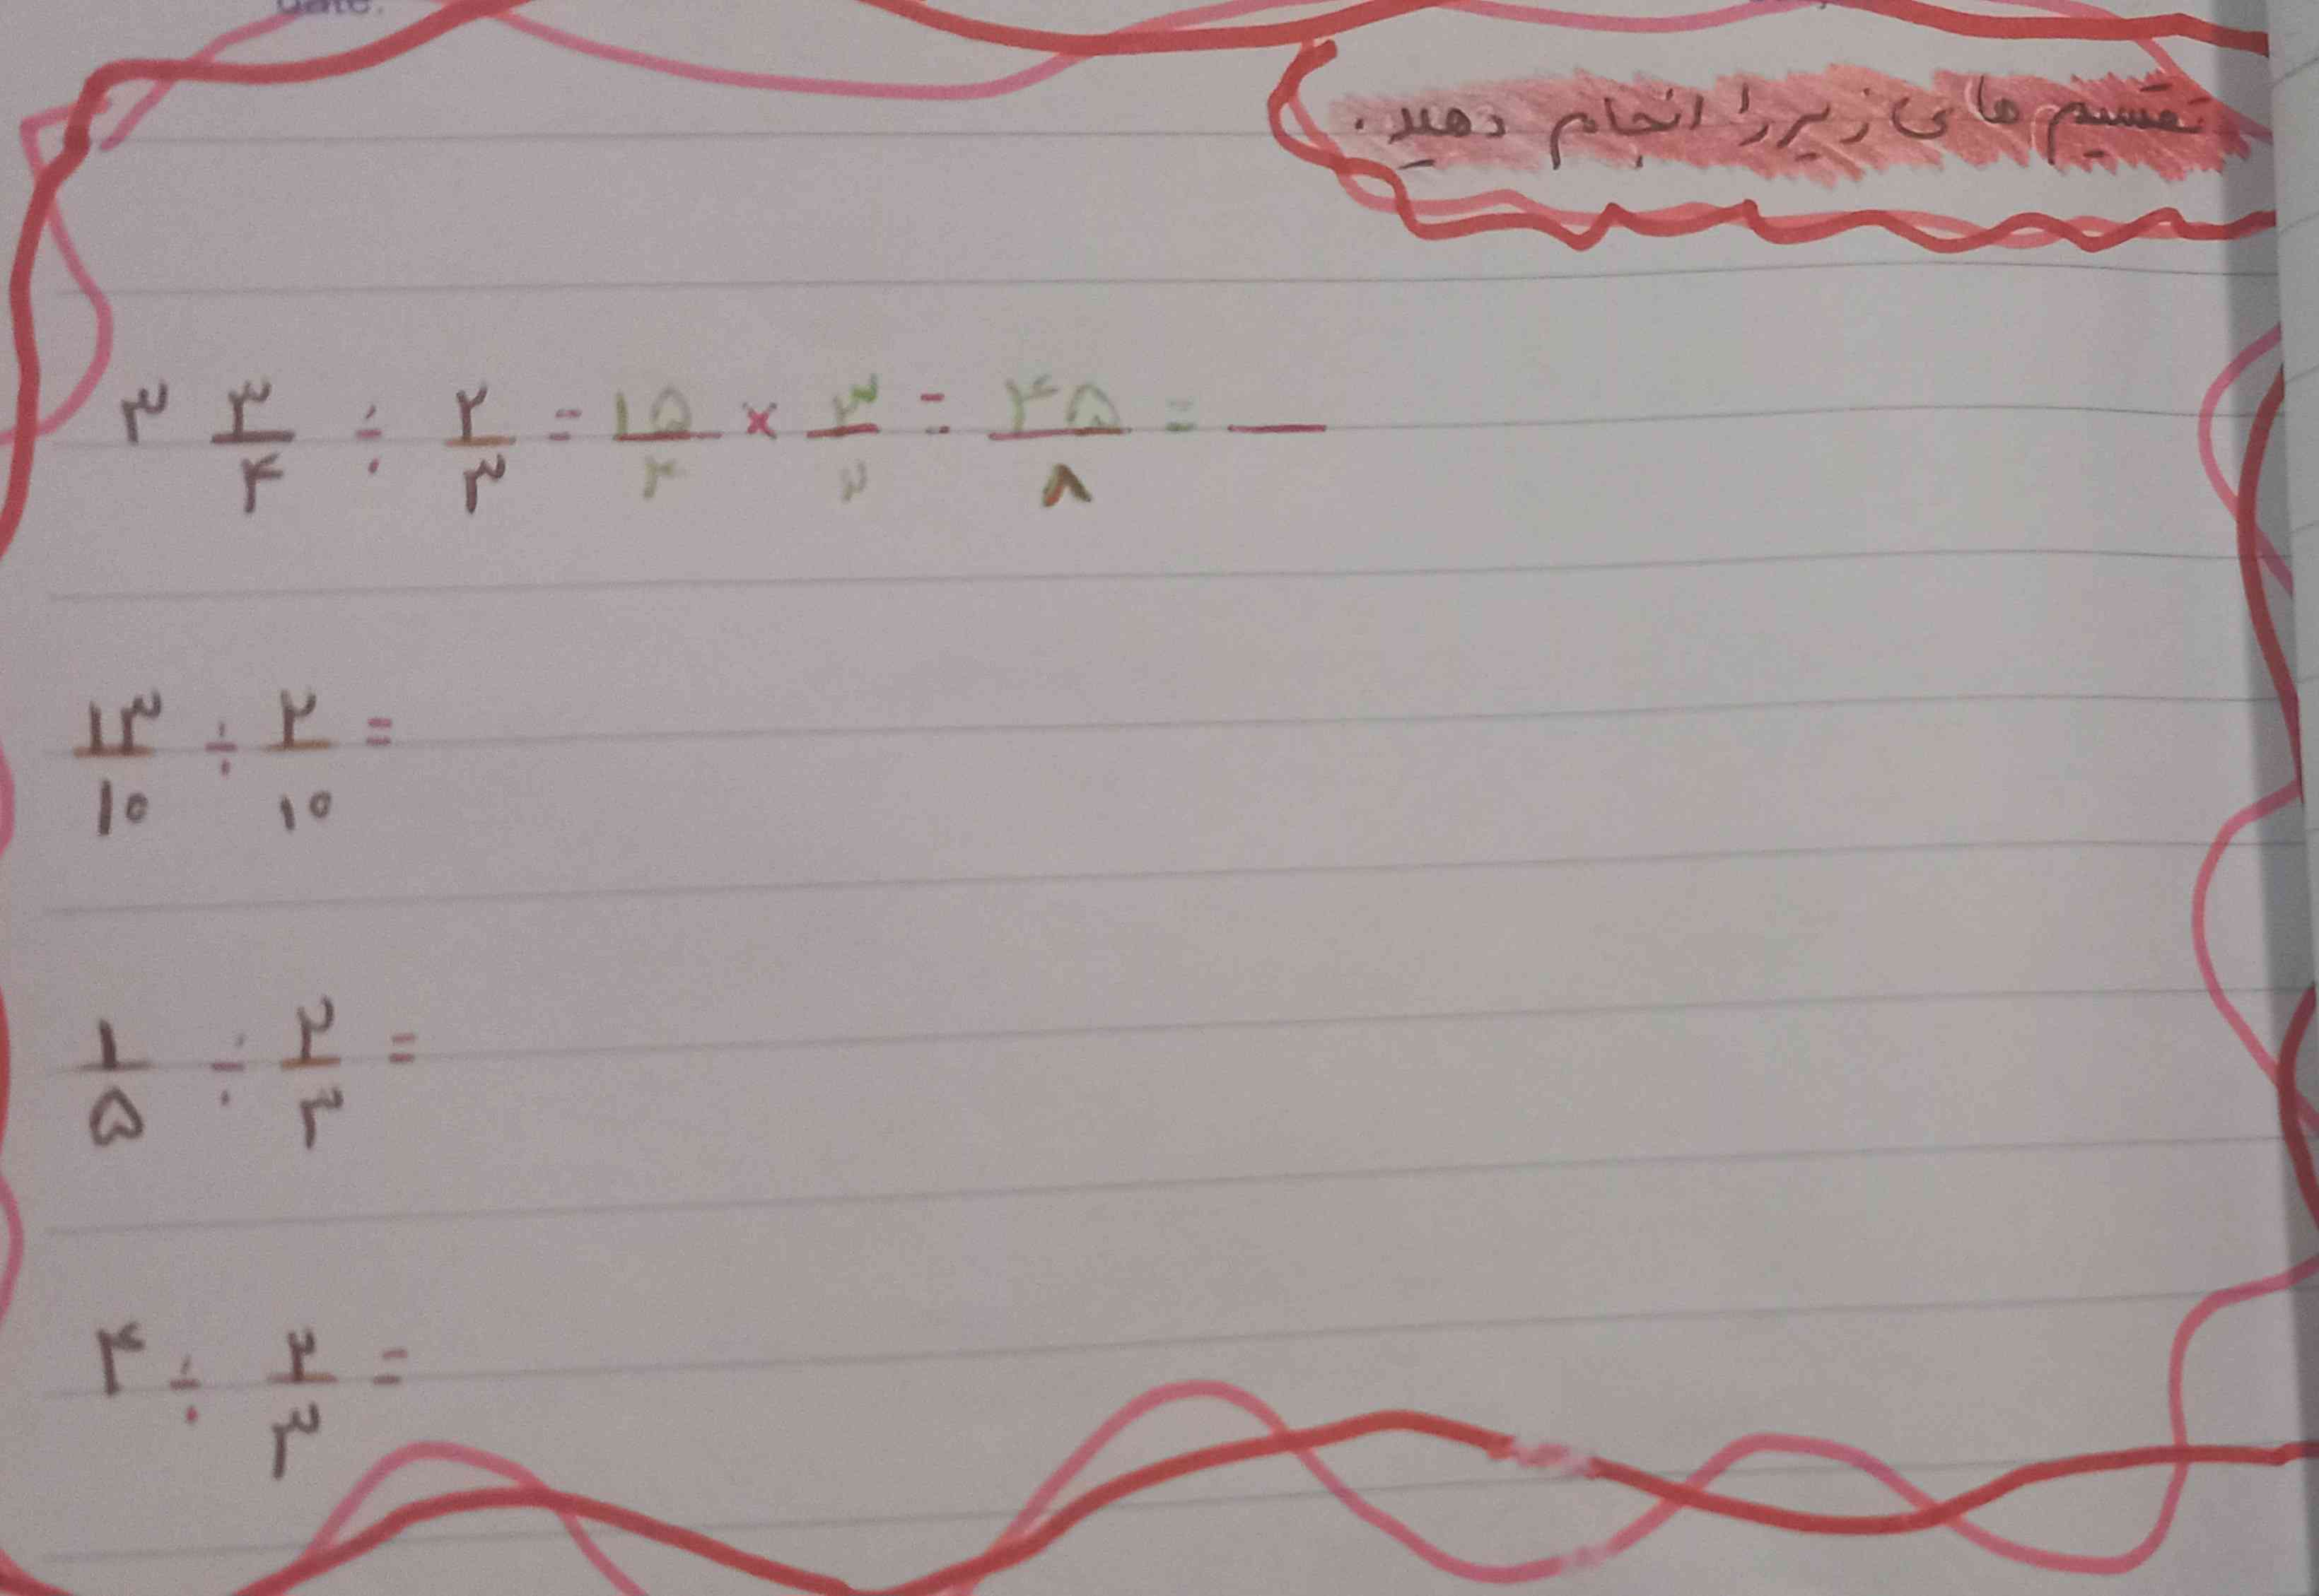 date:
تقسیم های زیر را انجام دهید.
۳ ۳/۴ ÷ ۲/۳ = ۱۵/۴ × ۳/۲ = ۴۵/۸ = —
۱۳/۱۰ ÷ ۲/۱۰ =
۱/۵ ÷ ۲/۳ =
۴ ÷ ۲/۳ =